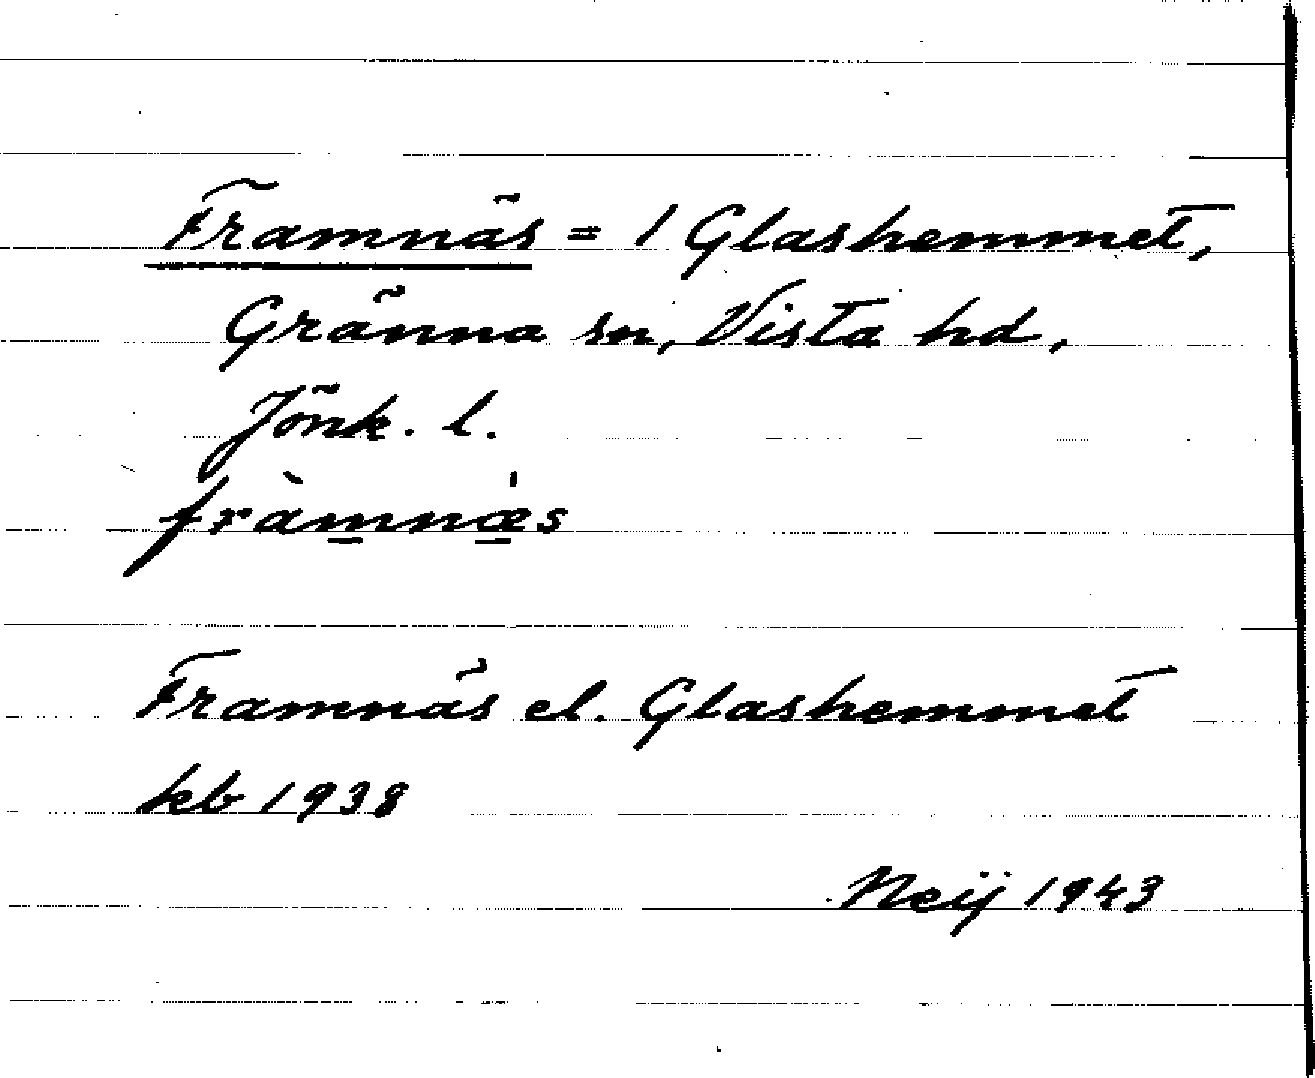 Framnäs = 1 Glashemmet,
Gränna sn, Vista hd,
Jönk. l.
fràm̲næ̲̍s
Framnäs el. Glashemmet
kb 1938
Neij 1943